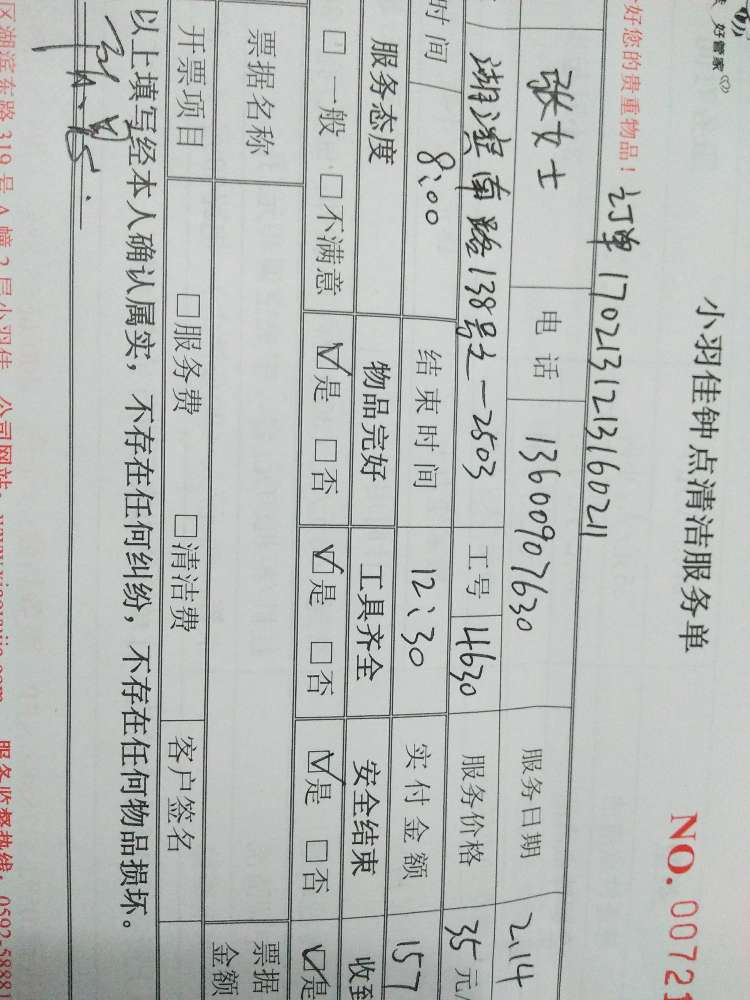 好管家
小羽佳钟点清洁服务单
NO. 00721
好您的贵重物品！ 订单 1702131213160211
张女士 电话 13600907630 服务日期 2.14
湖滨南路138号之一2503 工号 4630 服务价格 35元/
时间 8:00 结束时间 12:30 实付金额 157
服务态度 物品完好 工具齐全 安全结束 收到
□一般 □不满意 ☑是 □否 ☑是 □否 ☑是 □否 ☑是
票据名称 票据金额
开票项目 □服务费 □清洁费 客户签名
以上填写经本人确认属实，不存在任何纠纷，不存在任何物品损坏。
区湖滨东路319号A幢2层小羽佳 公司网站: 服务监督热线: 0592-58881